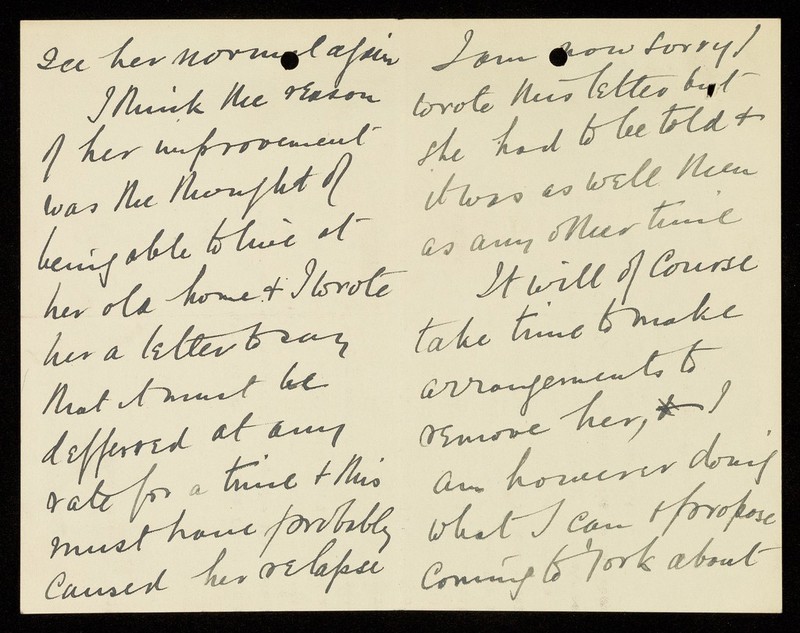 see her normal again
I think the reason
of her improvement
was the thought of
being able to live at
her old home & I wrote
her a letter to say
that it must be
defferred at any
rate for a time & this
must have probably
caused her relapse
I am now sorry I
wrote this letter but
she had to be told &
it was as well then
as any other time
It will of course
take time to make
arrangements to
remove her, I
am however doing
what I can & propose
coming to York about